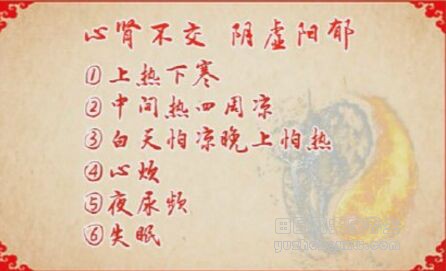 心肾不交 阴虚阳郁
①上热下寒
②中间热四周凉
③白天怕凉晚上怕热
④心烦
⑤夜尿频
⑥失眠